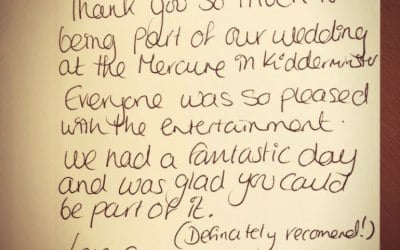 Thank you so much for
being part of our wedding
at the Mercure in Kidderminster
Everyone was so pleased
with the entertainment.
we had a fantastic day
and was glad you could
be part of it.
(Definately recomend!)